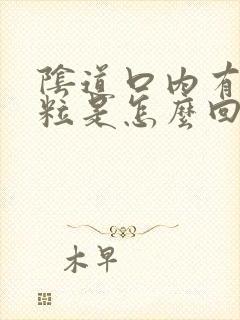 陰道口內有
粒是怎麼回
木早